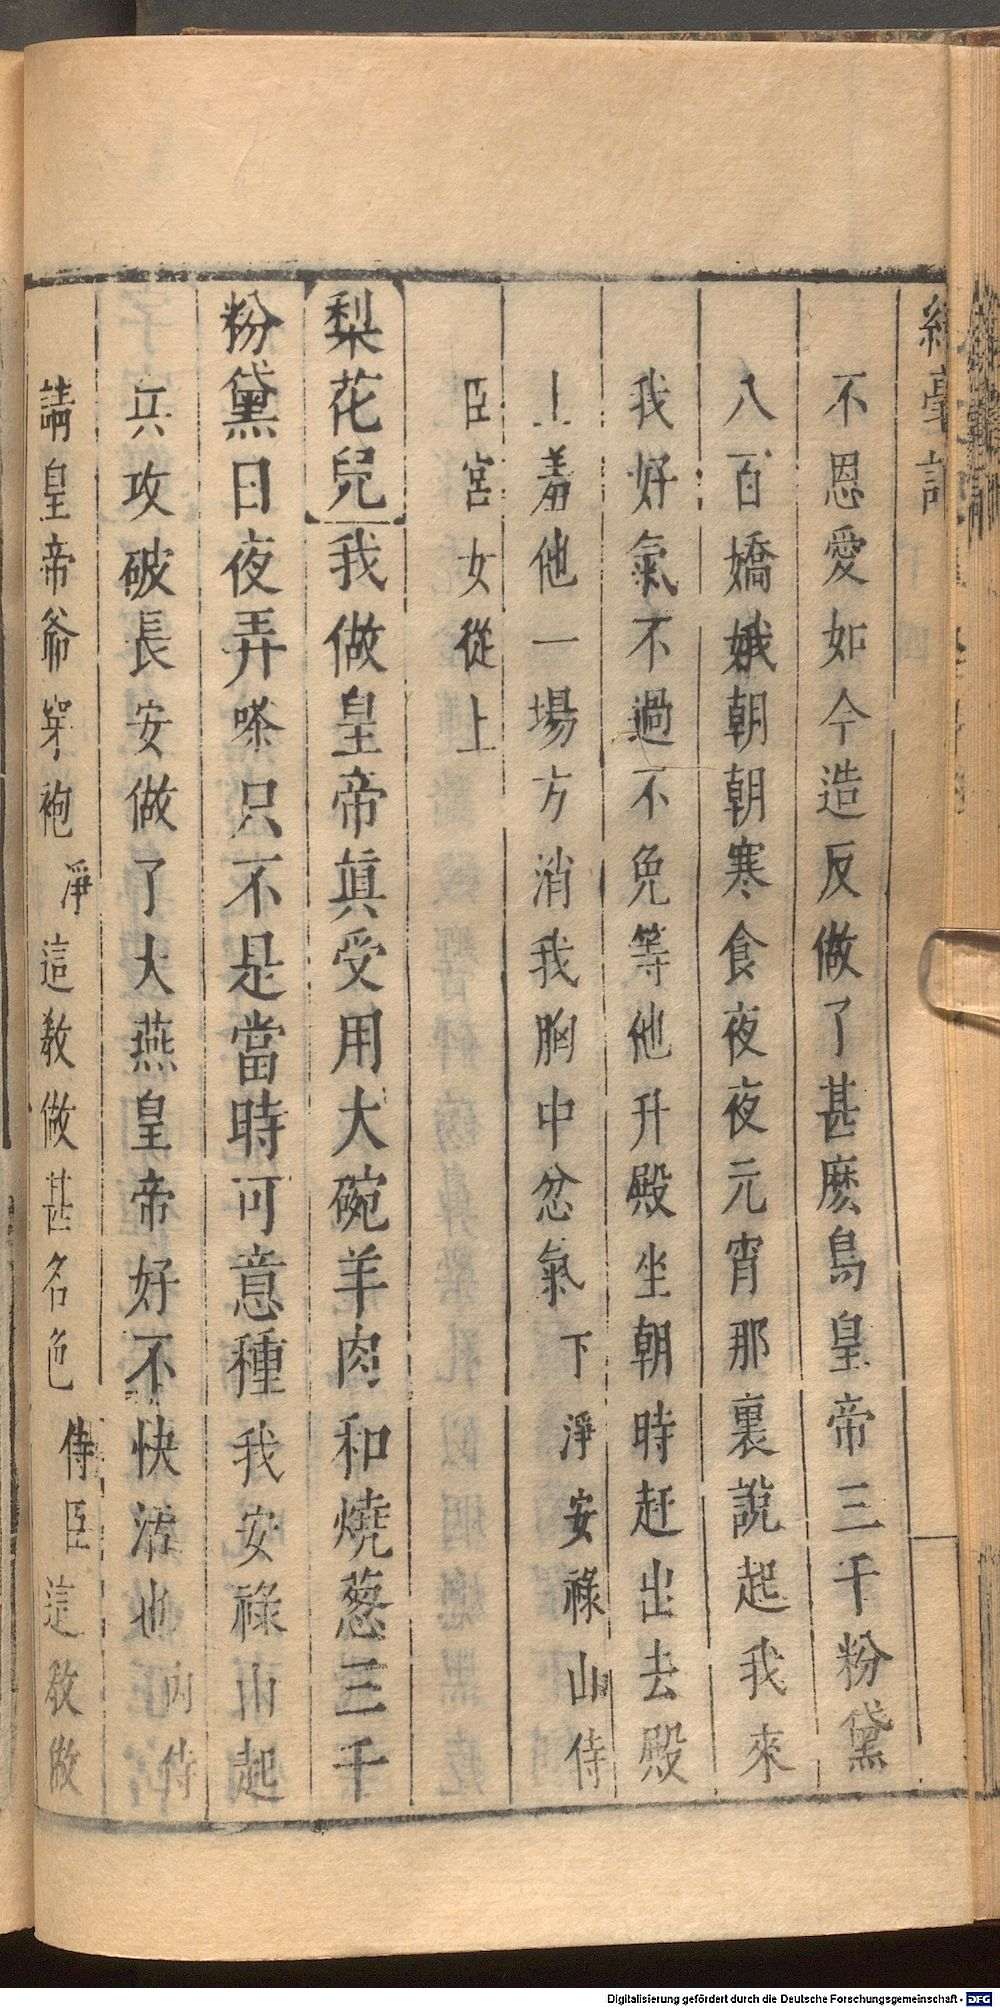 不恩愛如今造反做了甚麽鳥皇帝三千粉黛
八百嬌娥朝朝寒食夜夜元宵那裏說起我來
我好氣不過不免等他升殿坐朝時赶出去殿
上羞他一場方消我胸中忿氣下淨安祿山侍
臣宮女從上
梨花兒我做皇帝眞受用大碗羊肉和燒葱三千
粉黛日夜弄嗏只不是當時可意種我安祿山起
兵攻破長安做了大燕皇帝好不快活也內侍
請皇帝爺穿袍淨這敎做甚名色侍臣這敎做
Digitalisierung gefördert durch die Deutsche Forschungsgemeinschaft - DFG